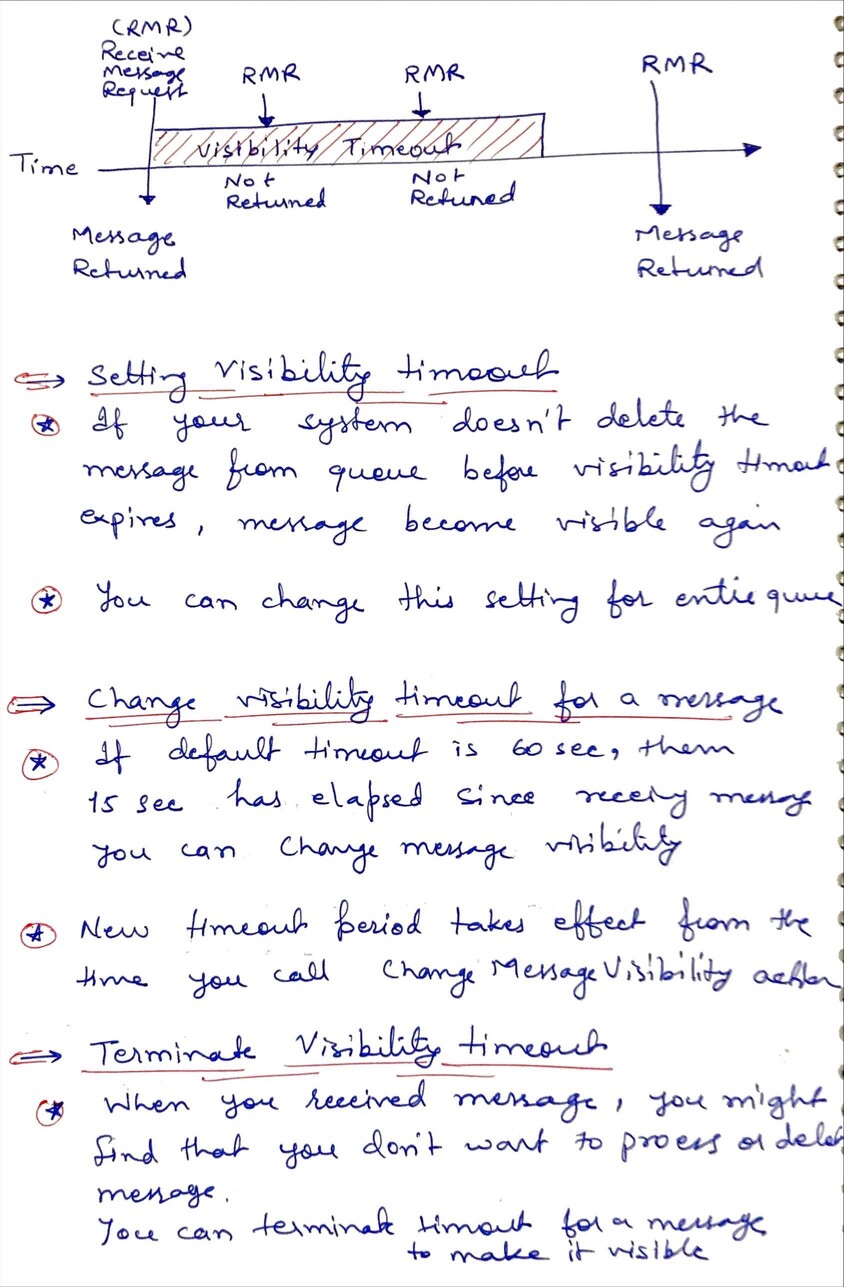 (RMR)
Receive
Message
Request
RMR
RMR
RMR
Visibility Timeout
Time
Not
Returned
Not
Retuned
Message
Returned
Message
Returned
Setting Visibility timeout
If your system doesn't delete the
message from queue before visibility timout
expires, message become visible again
You can change this setting for entie queue
Change visibility timeout for a message
If default timeout is 60 sec, them
15 sec has elapsed since
you can change message visibility
New timeout period takes effect from the
time you call Change Message Visibility action
Terminate Visibility timeout
When you received message, you might
find that you don't want to process or delet
message.
You can terminate timout for a message
to make it visible